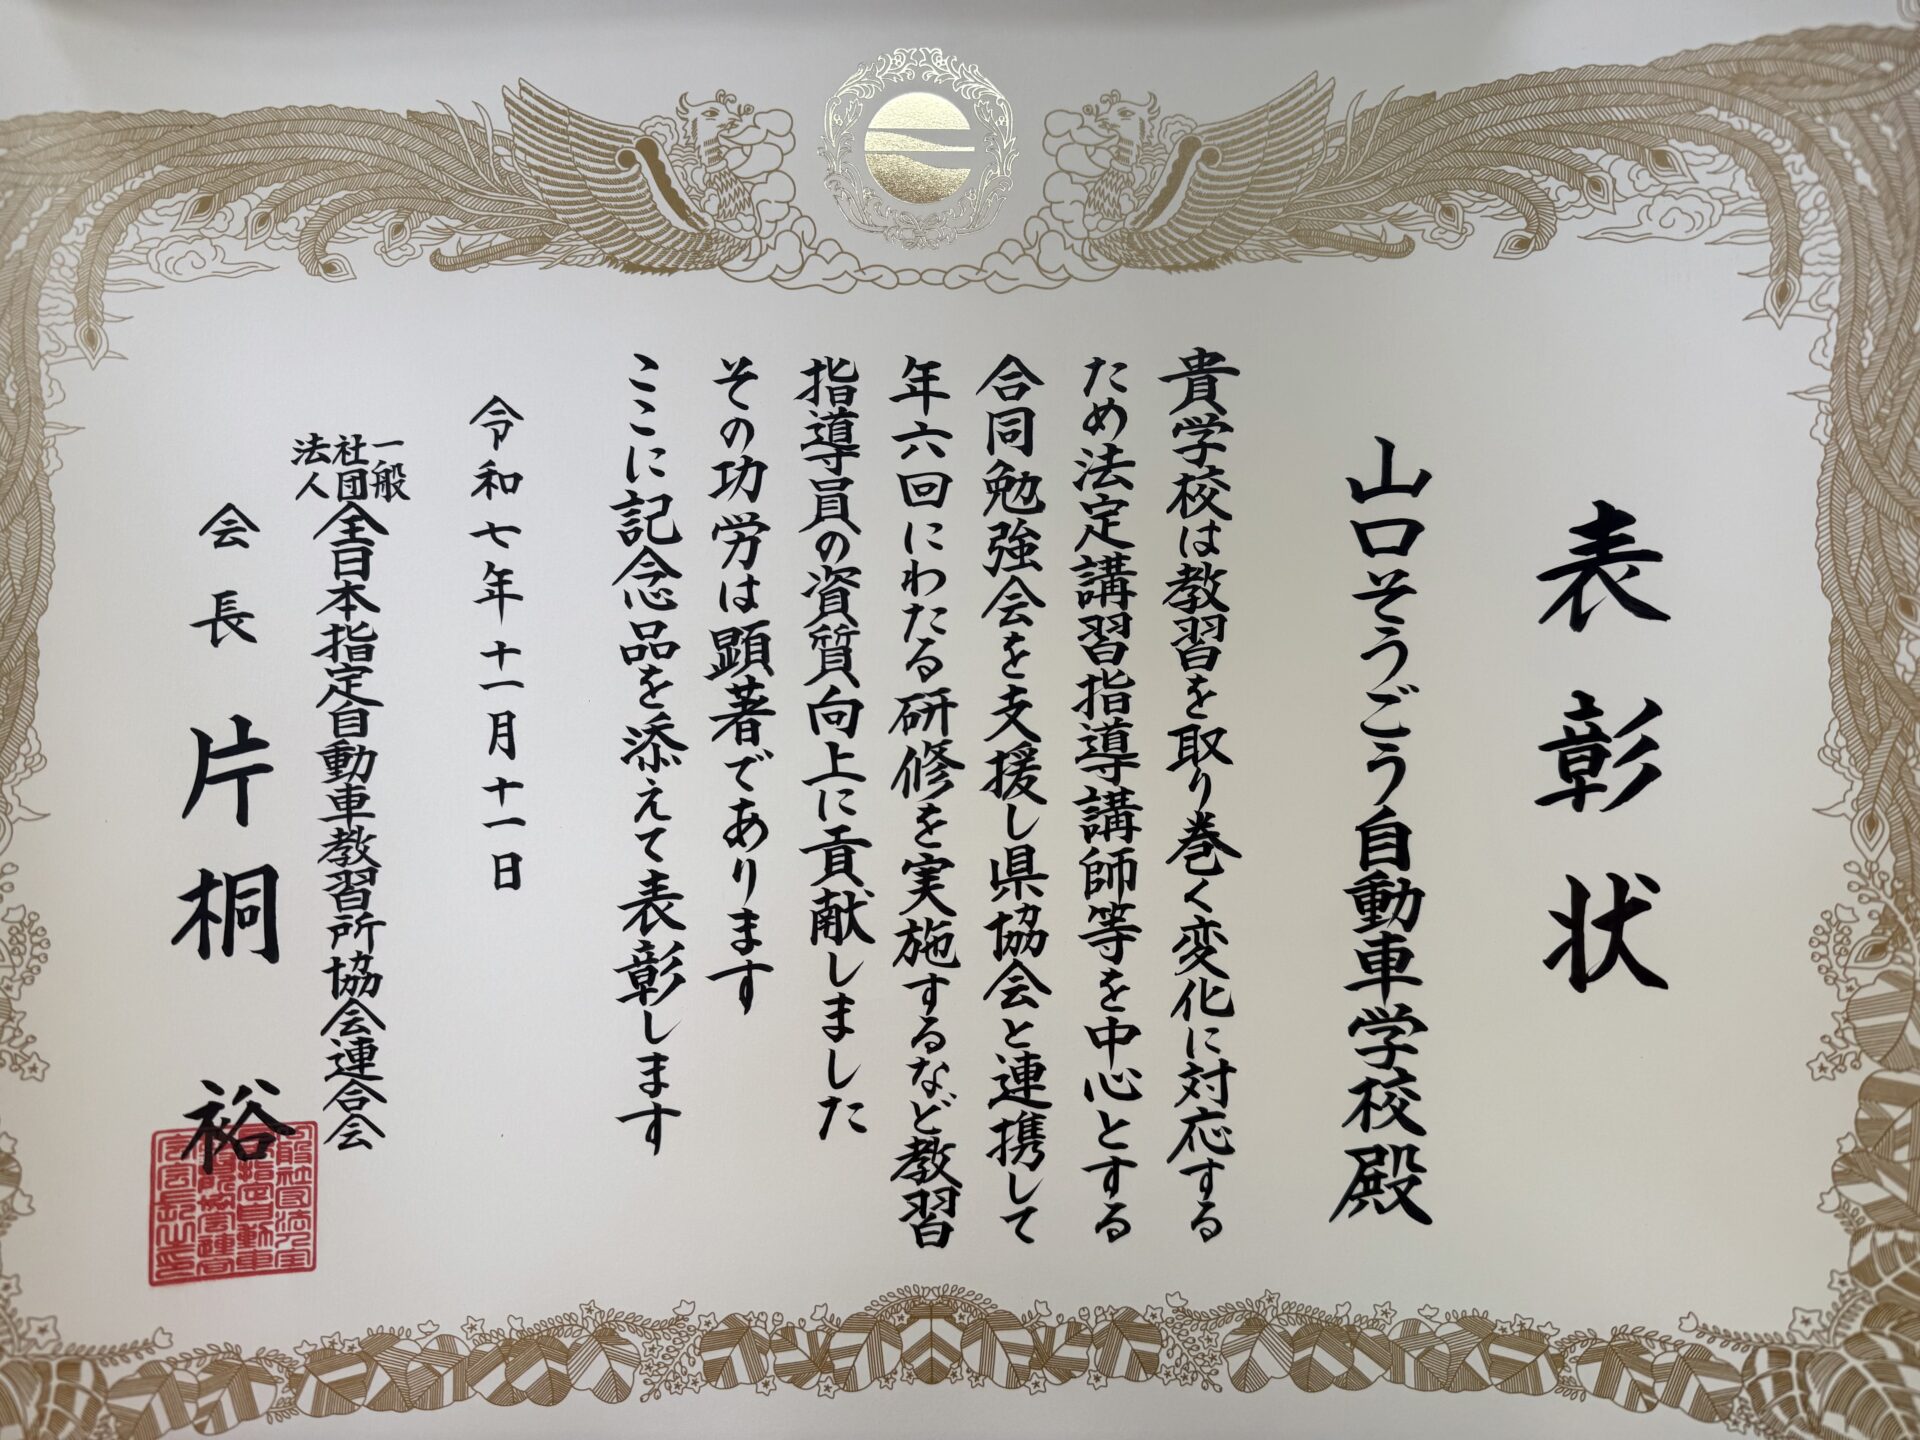 表彰状
山口そうごう自動車学校殿
貴学校は教習を取り巻く変化に対応する
ため法定講習指導講師等を中心とする
合同勉強会を支援し県協会と連携して
年六回にわたる研修を実施するなど教習
指導員の資質向上に貢献しました
その功労は顕著であります
ここに記念品を添えて表彰します
令和七年十一月十一日
一般社団法人全日本指定自動車教習所協会連合会
会長 片桐 裕